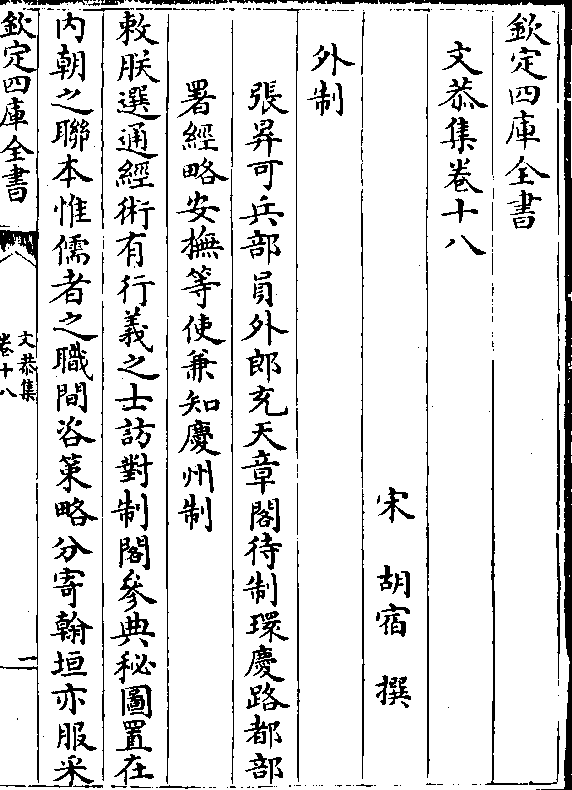 欽定四庫全書
文恭集卷十八
宋 胡宿 撰
外制
張昇可兵部員外郎充天章閣待制環慶路都部
署經略安撫等使兼知慶州制
敕朕選通經術有行義之士訪對制閣參典秘圖置在
内朝之聯本惟儒者之職間咨策略分寄翰垣亦服采
欽定四庫全書
文恭集
卷十八
一